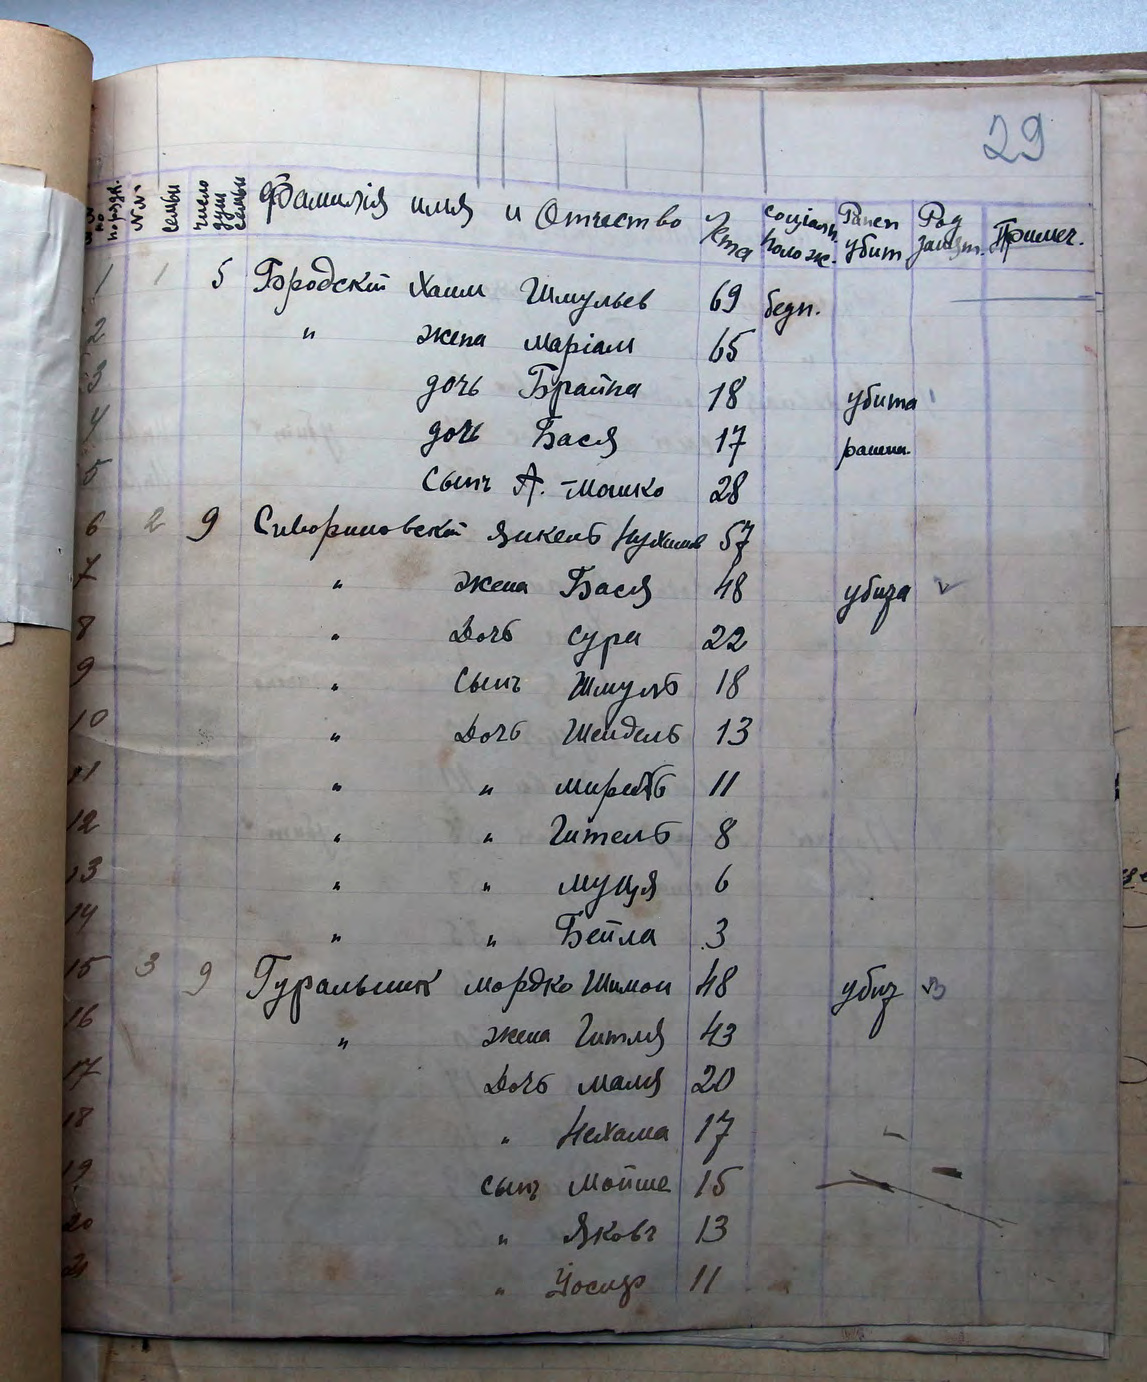 29
№№ по порядк. №№ семьи число душ семьи Фамилія имя и Отчество лѣта соціальн. полож. Ранен убит Род занят. Примеч.
1 1 5 Бродскій Хаим Шмульев 69 бедн.
2 " жена Маріам 65
3 дочь Брайна 18 убита
4 дочь Бася 17 ранена.
5 Сынъ А.-Мошко 28
6 2 9 Янкель Нухимов 57
7 " жена Бася 48 убита
8 " Дочь Сура 22
9 " Сынъ Шмуль 18
10 " Дочь Шейдель 13
11 " " 11
12 " " Гитель 8
13 " " Муця 6
14 " " Бейла 3
15 3 9 Гуральник Мордко Шимон 48 убит
16 " жена Гитля 43
17 Дочь Маля 20
18 " Нехама 17
19 сынъ Мойше 15
20 " Яковъ 13
21 " Іосиф 11